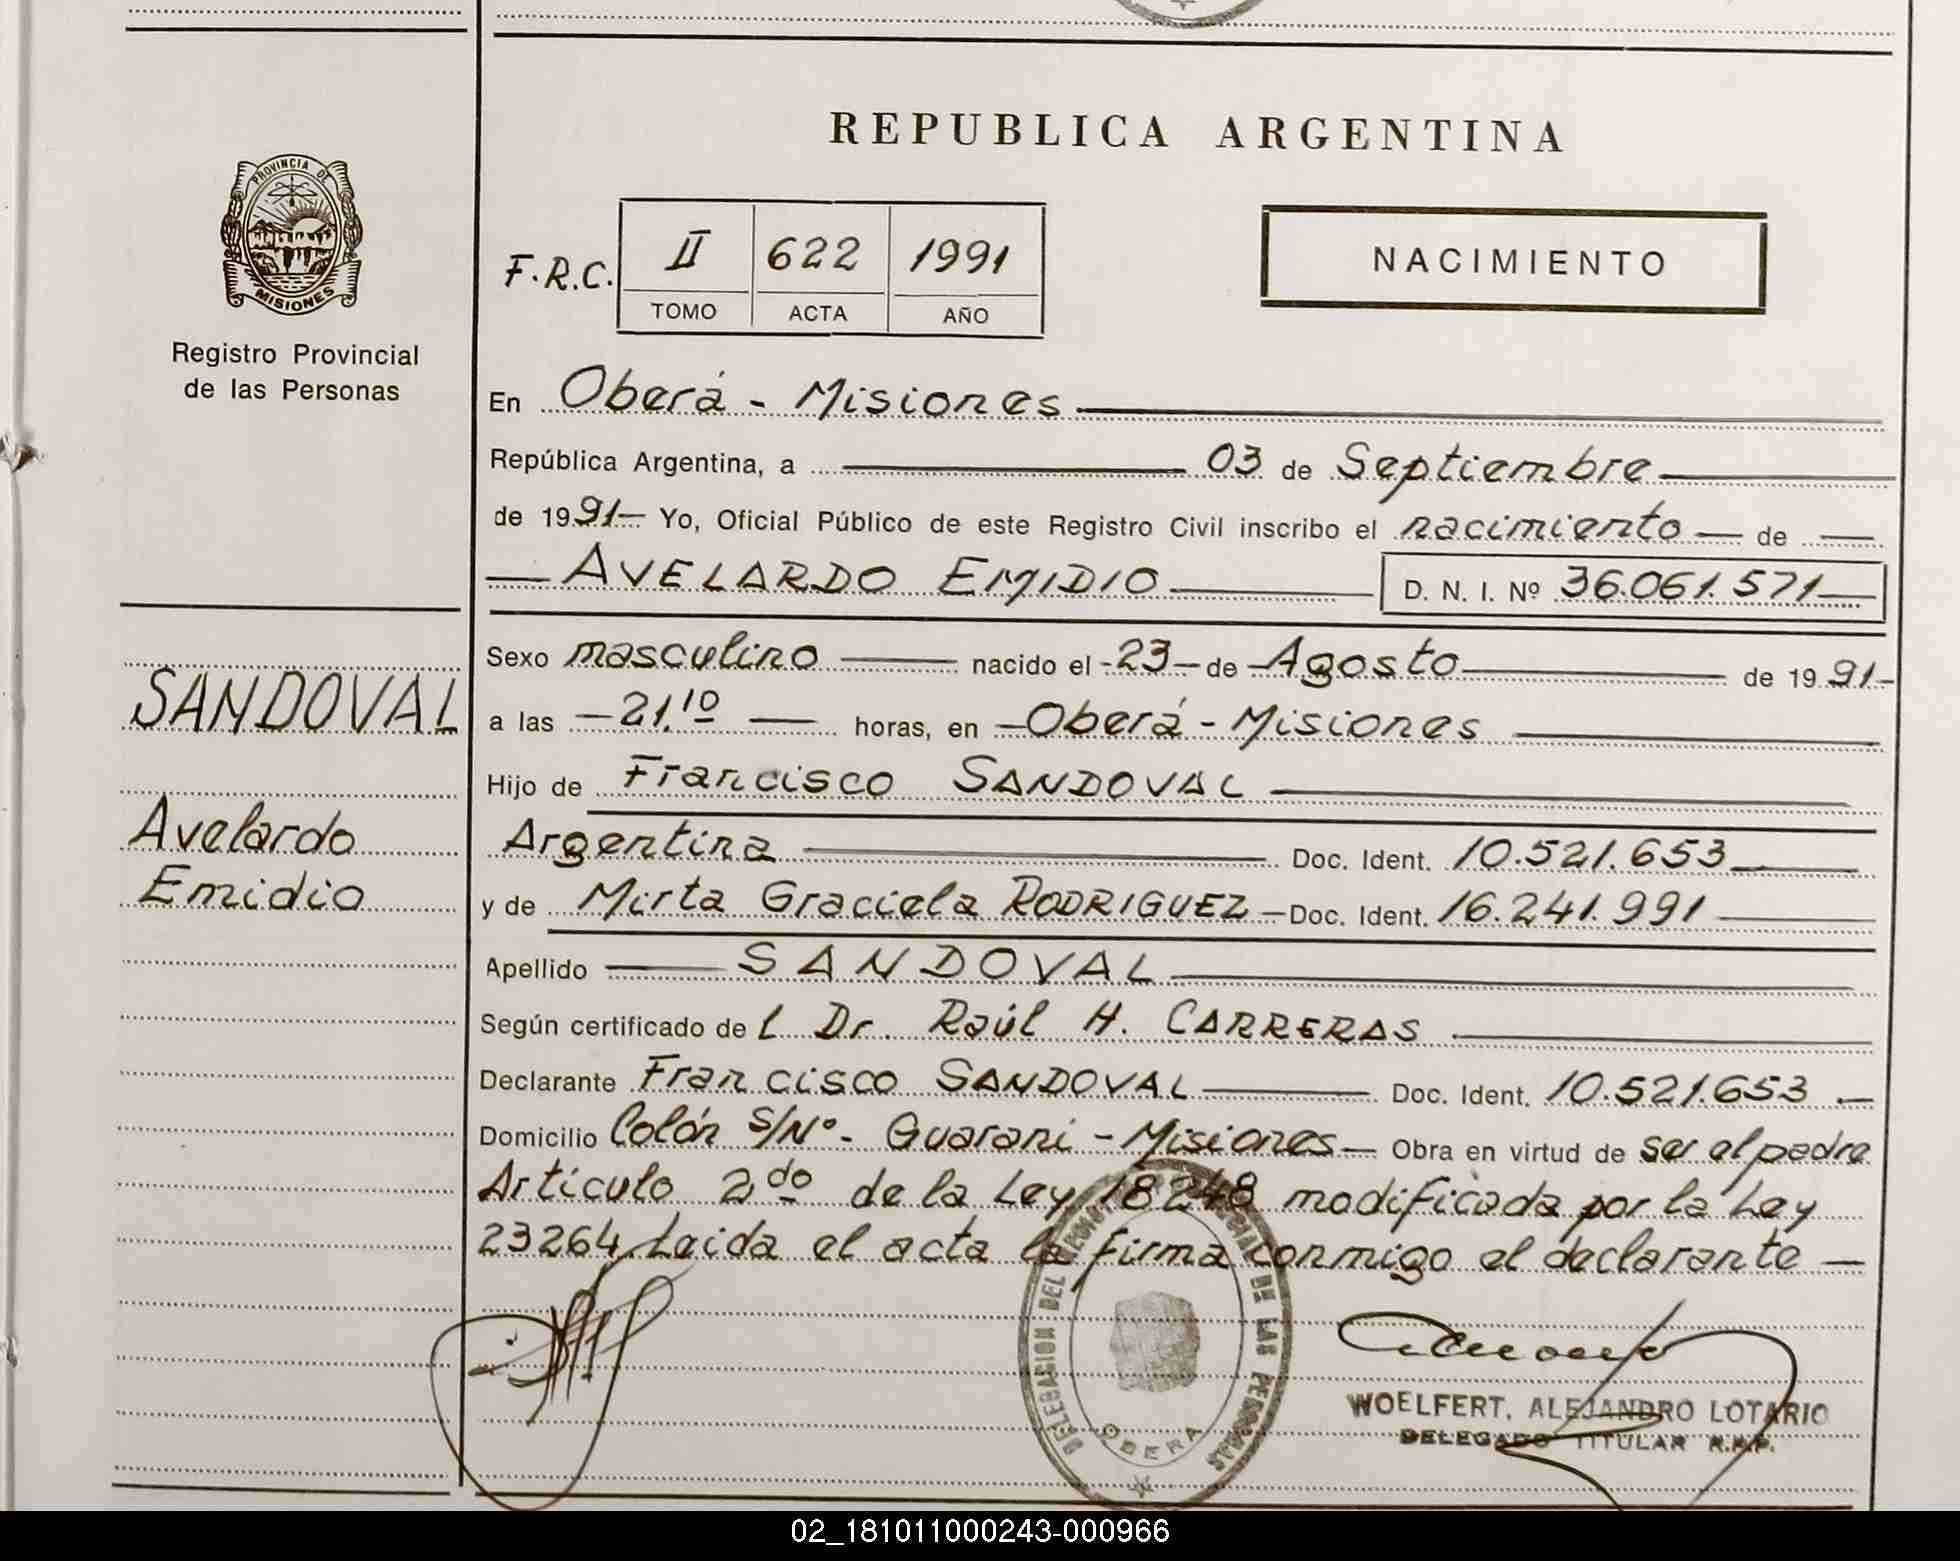 REPUBLICA ARGENTINA
PROVINCIA DE
MISIONES
Registro Provincial
de las Personas
F.R.C. II 622 1991
TOMO ACTA AÑO
NACIMIENTO
En Oberá - Misiones
República Argentina, a 03 de Septiembre
de 1991 Yo, Oficial Público de este Registro Civil inscribo el nacimiento de
AVELARDO EMIDIO D. N. I. Nº 36.061.571
SANDOVAL
Avelardo
Emidio
Sexo masculino nacido el 23 de Agosto de 1991
a las 21.10 horas, en Oberá - Misiones
Hijo de Francisco SANDOVAL
Argentina Doc. Ident. 10.521.653
y de Mirta Graciela RODRIGUEZ Doc. Ident. 16.241.991
Apellido SANDOVAL
Según certificado de l Dr. Raúl H. CARRERAS
Declarante Francisco SANDOVAL Doc. Ident. 10.521.653
Domicilio Colón S/Nº. Guarani - Misiones Obra en virtud de ser el padre
Artículo 2do de la Ley 18248 modificada por la Ley
23264. Leida el acta la firma conmigo el declarante
DELEGACION DEL DE LAS PERSONAS
OBERA
WOELFERT, ALEJANDRO LOTARIO
DELEGADO TITULAR R.P.P.
02_181011000243-000966